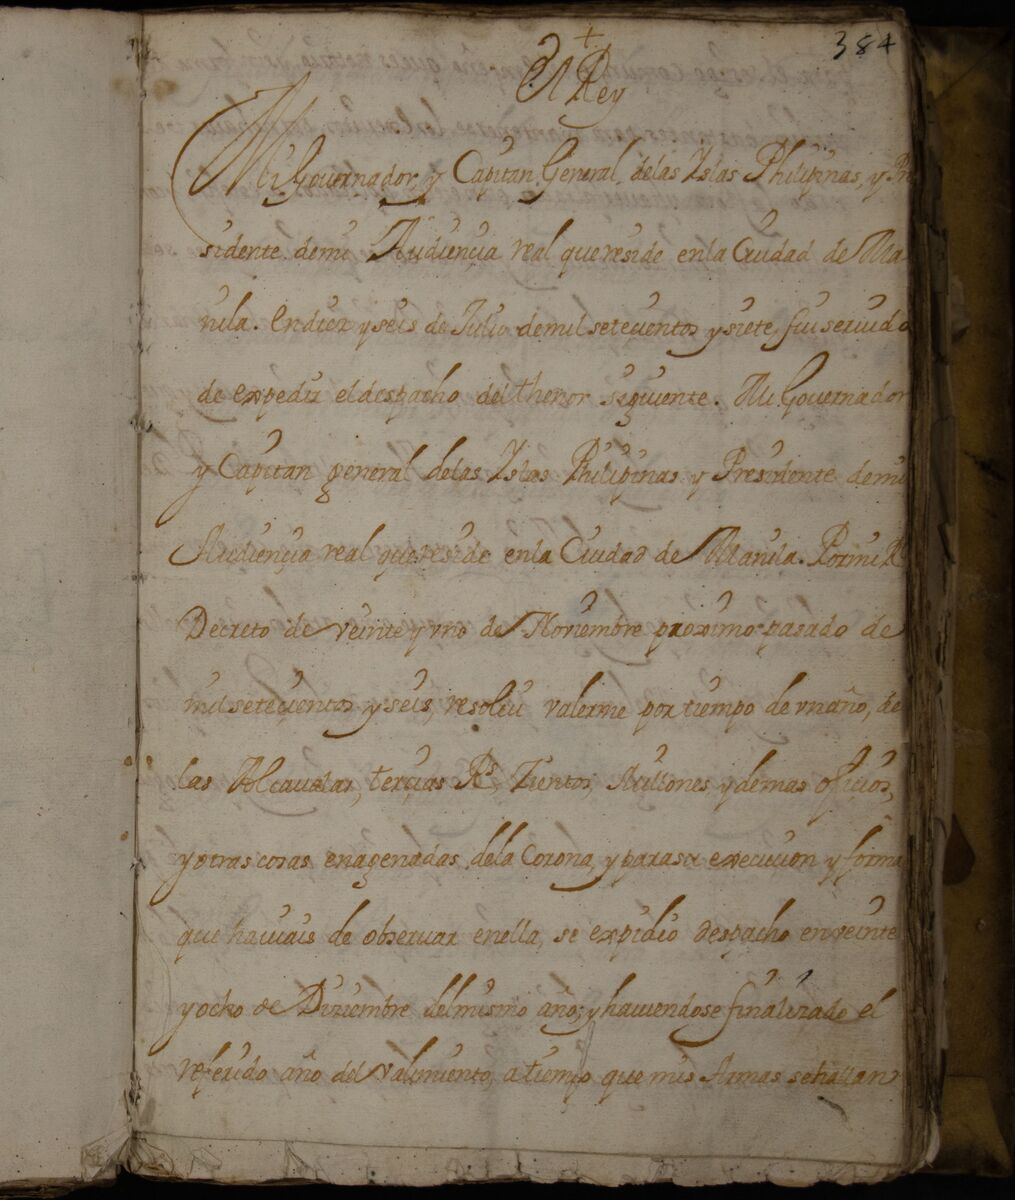 384
+
El Rey
Mi Governador, y Capitan General, de las Yslas Philipinas, y Pre
sidente de mi Audiencia real que reside en la Ciudad de Ma
nila. En diez y seis de Julio de mil setecientos y siete, fui servido
de expedir el despacho del thenor seguiente. Mi Governador
y Capitan general de las Yslas Philipinas y Presidente de mi
Audiencia real que reside en la Ciudad de Manila. Por mi Rl
Decreto de veinte y vno de Noviembre proximo pasado de
mil setecientos y seis, resolvi valerme por tiempo de vn año, de
las Alcavalas, tercias Rs Zientos, Millones, y demas oficios,
y otras cosas enagenadas de la Corona, y para su execucion y forma
que haviais de observar en ella, se expidio despacho en veinte
y ocho de Diziembre del mismo año; y haviendose finalizado el
referido año del valimiento, a tiempo que mis Armas se hallan